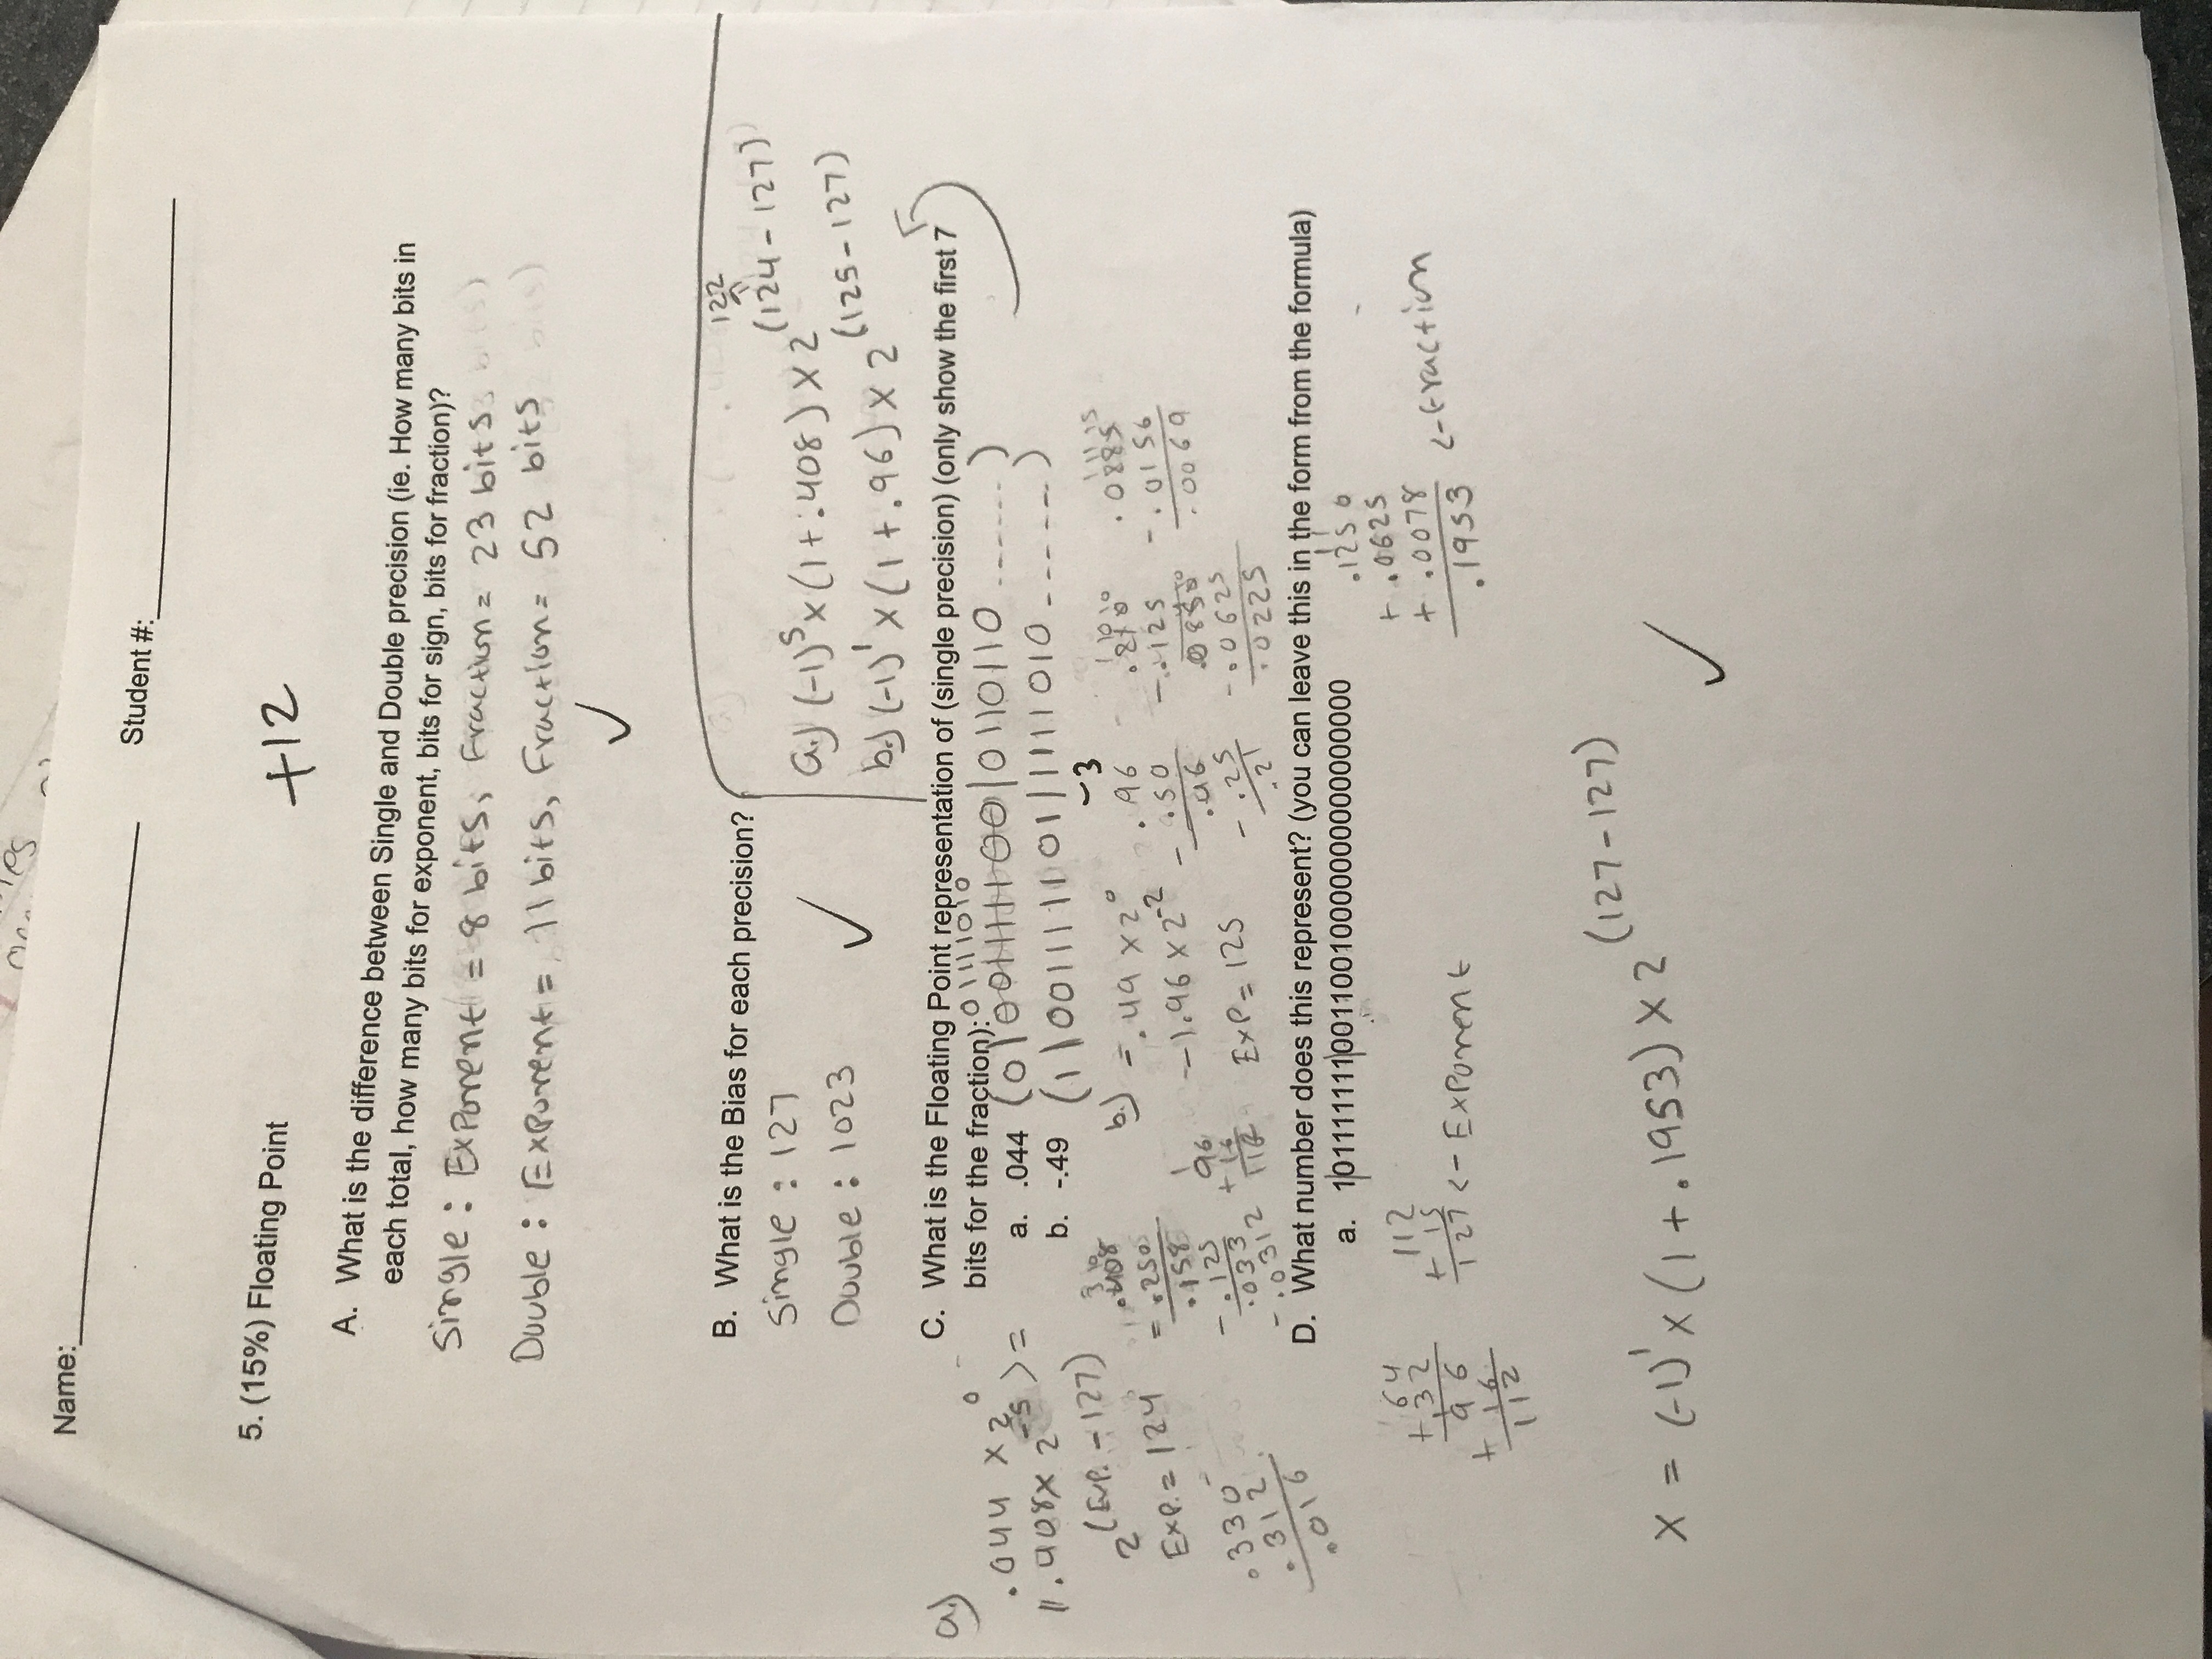 Name:
Student #:
5. (15%) Floating Point
+12
A. What is the difference between Single and Double precision (ie. How many bits in
each total, how many bits for exponent, bits for sign, bits for fraction)?
Single : Exponent = 8 bits, Fraction = 23 bits
Double : Exponent = 11 bits, Fraction = 52 bits
✓
B. What is the Bias for each precision?
Single : 127
Double : 1023
✓
122
a.) (-1)^S x (1 + .408) x 2^(124 - 127)
b.) (-1)^1 x (1 + .96) x 2^(125 - 127)
C. What is the Floating Point representation of (single precision) (only show the first 7
bits for the fraction):
01111010
a. .044 (0|0011111100|0110110 ------)
b. -.49 (1|0011111101|1111010 ------)
-3
a.)
.044 x 2^0
1.408 x 2^-5 ) =
2^(Exp. - 127)
Exp. = 124
.330
.312
.016
.408
- .250
.158
- .125
.033
- .0312
96
+ 16
112
b.) -.49 x 2^0
-1.96 x 2^-2
Exp = 125
.96
- .50
.46
- .25
.21
.210
- .125
.0850
- .0625
.0225
.0225
- .0156
.0069
D. What number does this represent? (you can leave this in the form from the formula)
a. 10111111100110010000000000000000
64
+ 32
96
+ 16
112
112
+ 15
127 <- Exponent
.1250
+ .0625
+ .0078
.1953 <- Fraction
x = (-1)^1 x (1 + .1953) x 2^(127 - 127)
✓